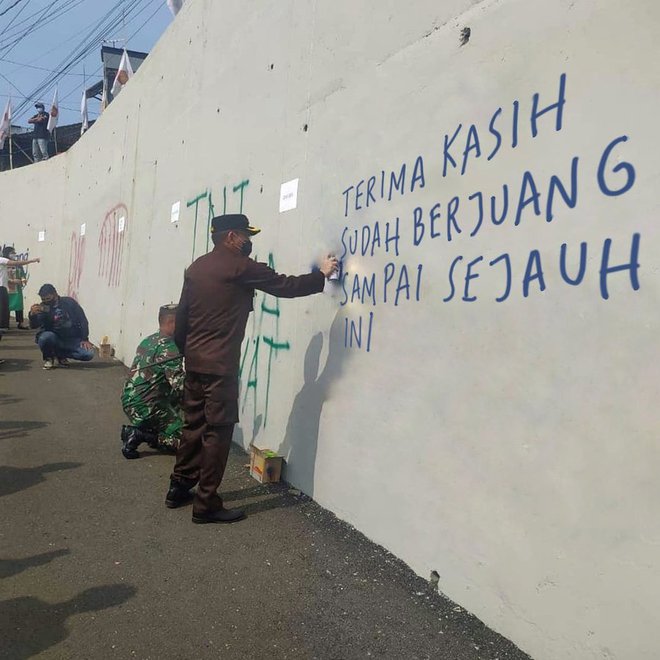 TNI
TERIMA KASIH
SUDAH BERJUANG
SAMPAI SEJAUH
INI